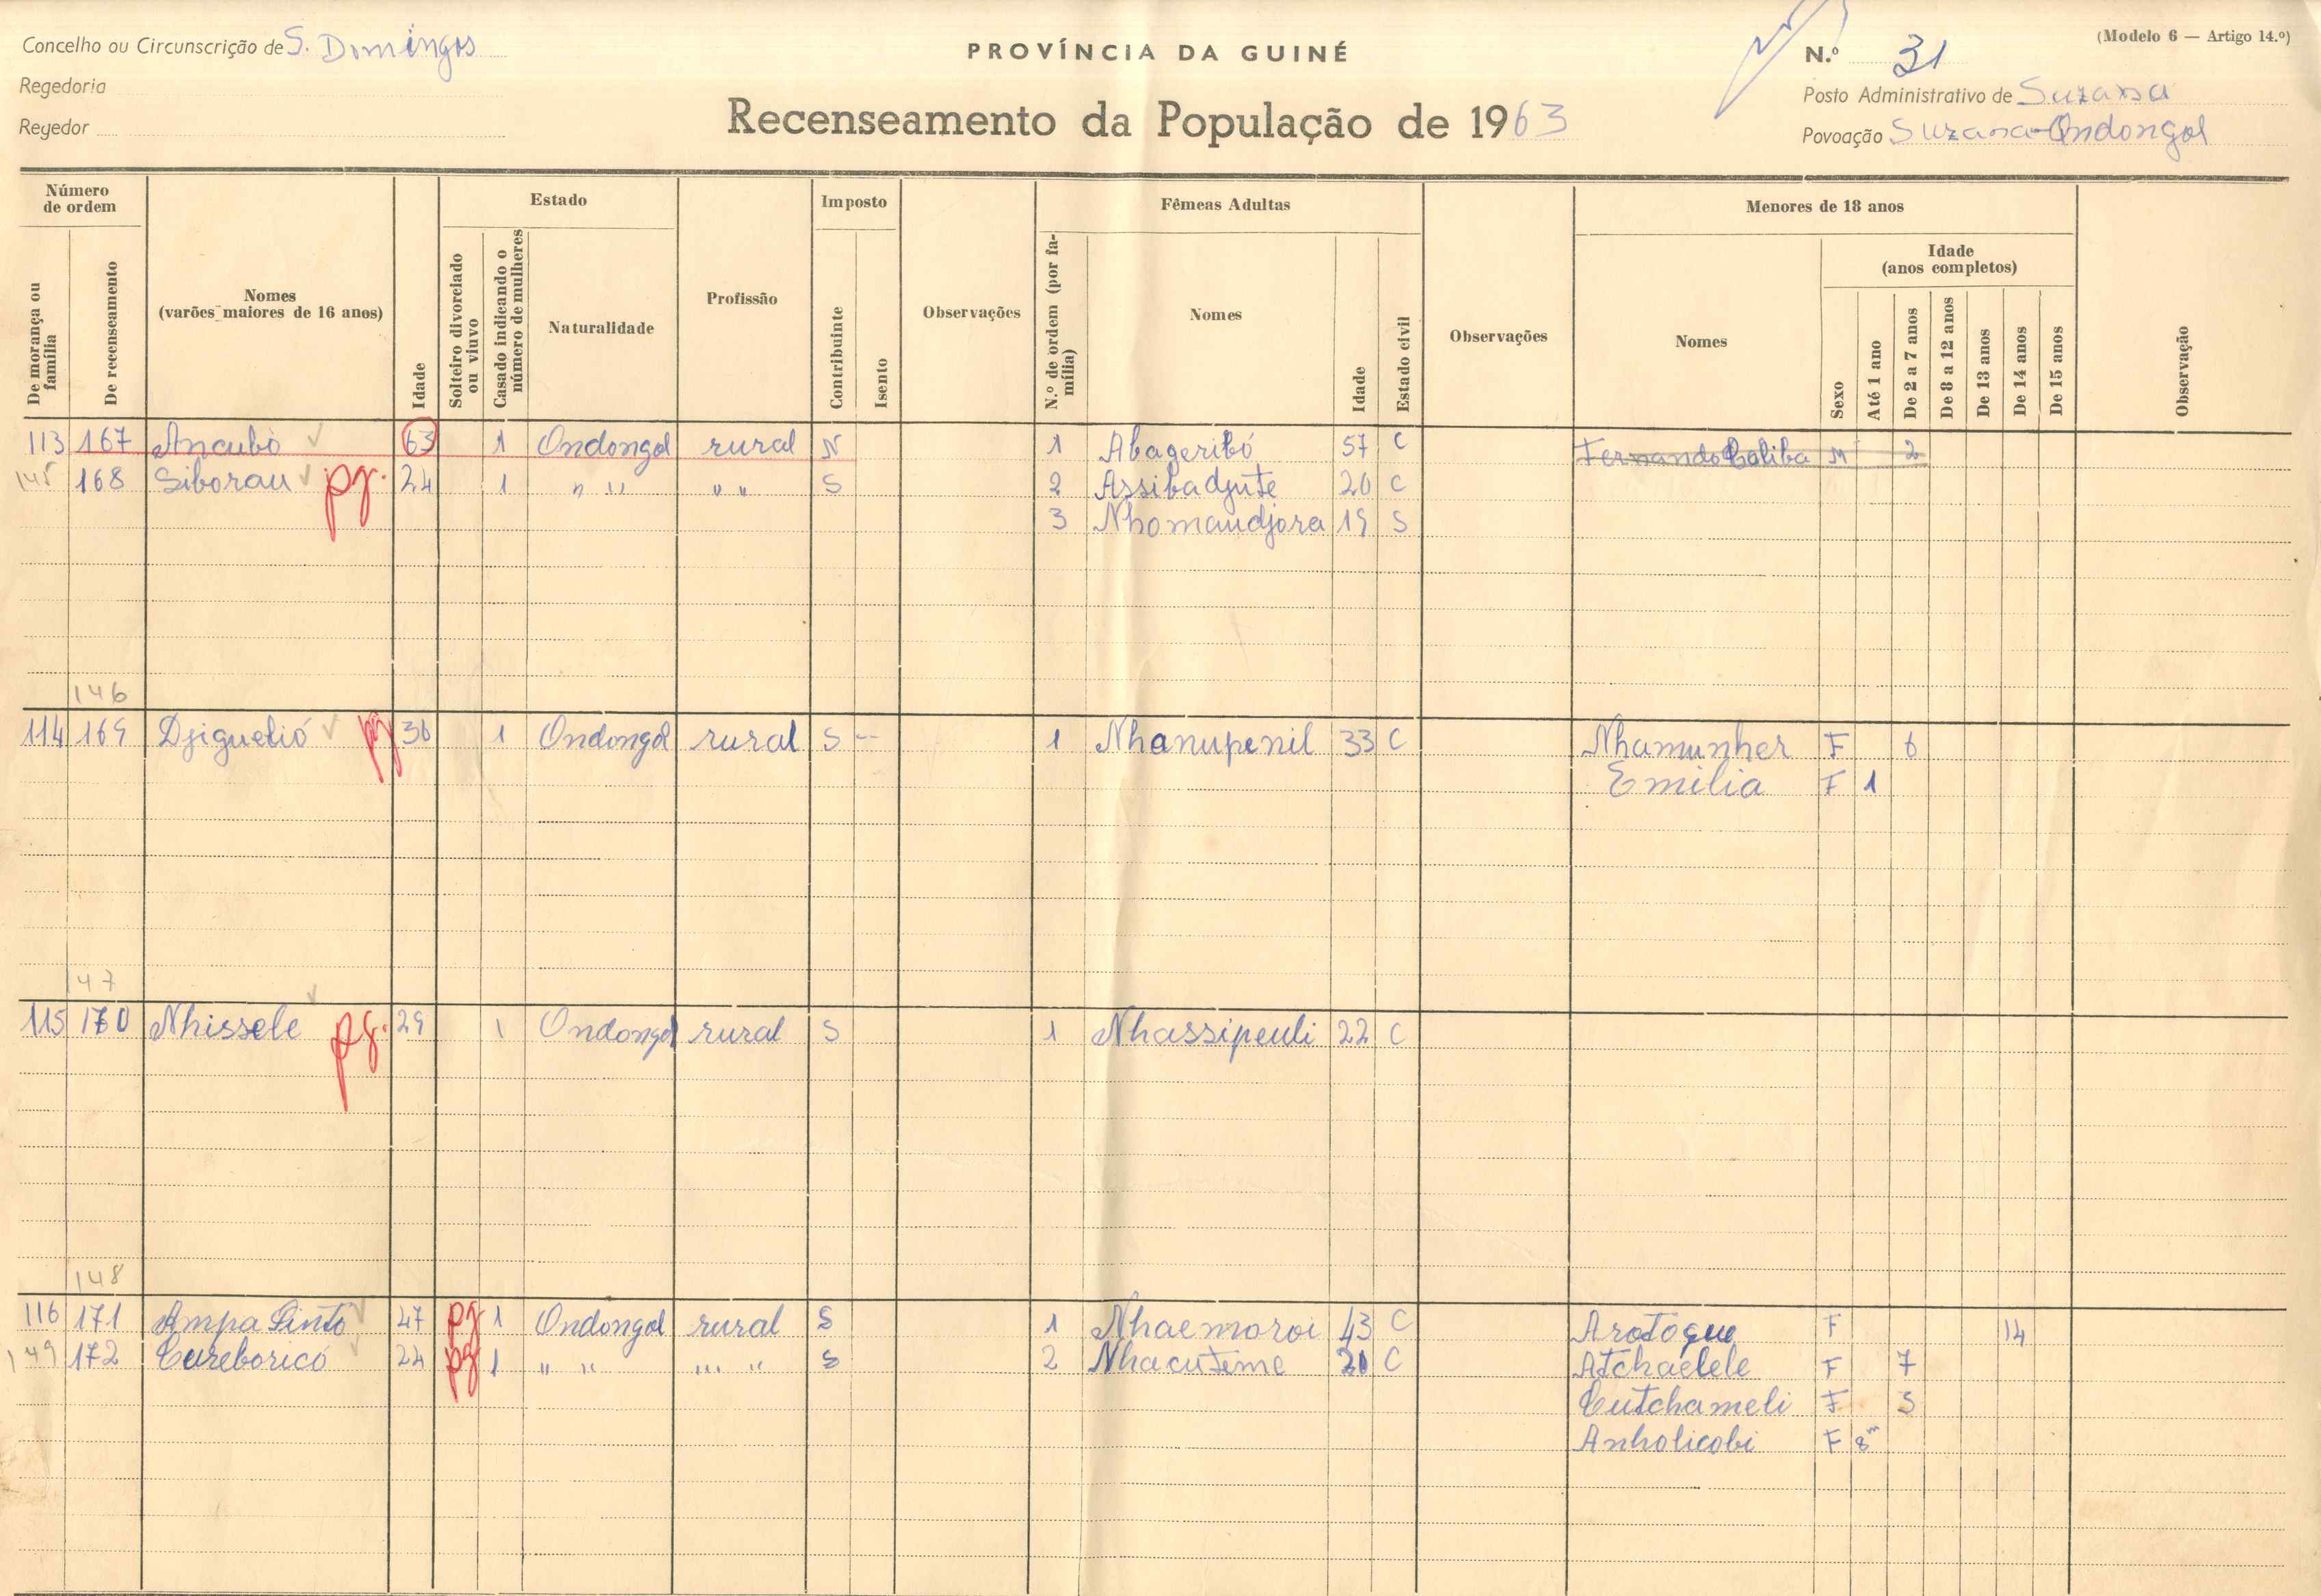 Concelho ou Circunscrição de S. Domingos
Regedoria
Regedor
PROVÍNCIA DA GUINÉ
Recenseamento da População de 1963
(Modelo 6 — Artigo 14.º)
N.º 31
Posto Administrativo de Suzana
Povoação Suzana-Ondongol
Número de ordem
De morança ou família
De recenseamento
Nomes
(varões maiores de 16 anos)
Idade
Estado
Solteiro divorciado ou viuvo
Casado indicando o número de mulheres
Naturalidade
Profissão
Imposto
Contribuinte
Isento
Observações
Fêmeas Adultas
N.º de ordem (por família)
Nomes
Idade
Estado civil
Observações
Menores de 18 anos
Nomes
Sexo
Idade
(anos completos)
Até 1 ano
De 2 a 7 anos
De 8 a 12 anos
De 13 anos
De 14 anos
De 15 anos
Observação
113 167 Ancubó 63 1 Ondongol rural N 1 Abageribó 57 C Fernando Caliba M 2
145 168 Siborau pg. 24 1 " " " " S 2 Assibadjute 20 C
3 Nhomaudjora 19 S
146
114 169 Djiguelió pg 36 1 Ondongol rural S -- 1 Nhanupenil 33 C Nhamunher F 6
Emilia F 1
147
115 170 Nhissele pg. 29 1 Ondongol rural S 1 Nhassipeuli 22 C
148
116 171 Ampa Pinto 47 pg 1 Ondongol rural S 1 Nhaemoroi 43 C Arotogue F 14
149 172 Cureboricó 24 pg 1 " " " " S 2 Nhacuteme C Atchaélele F 7
Cutchameli F
Anholicobi F 8m